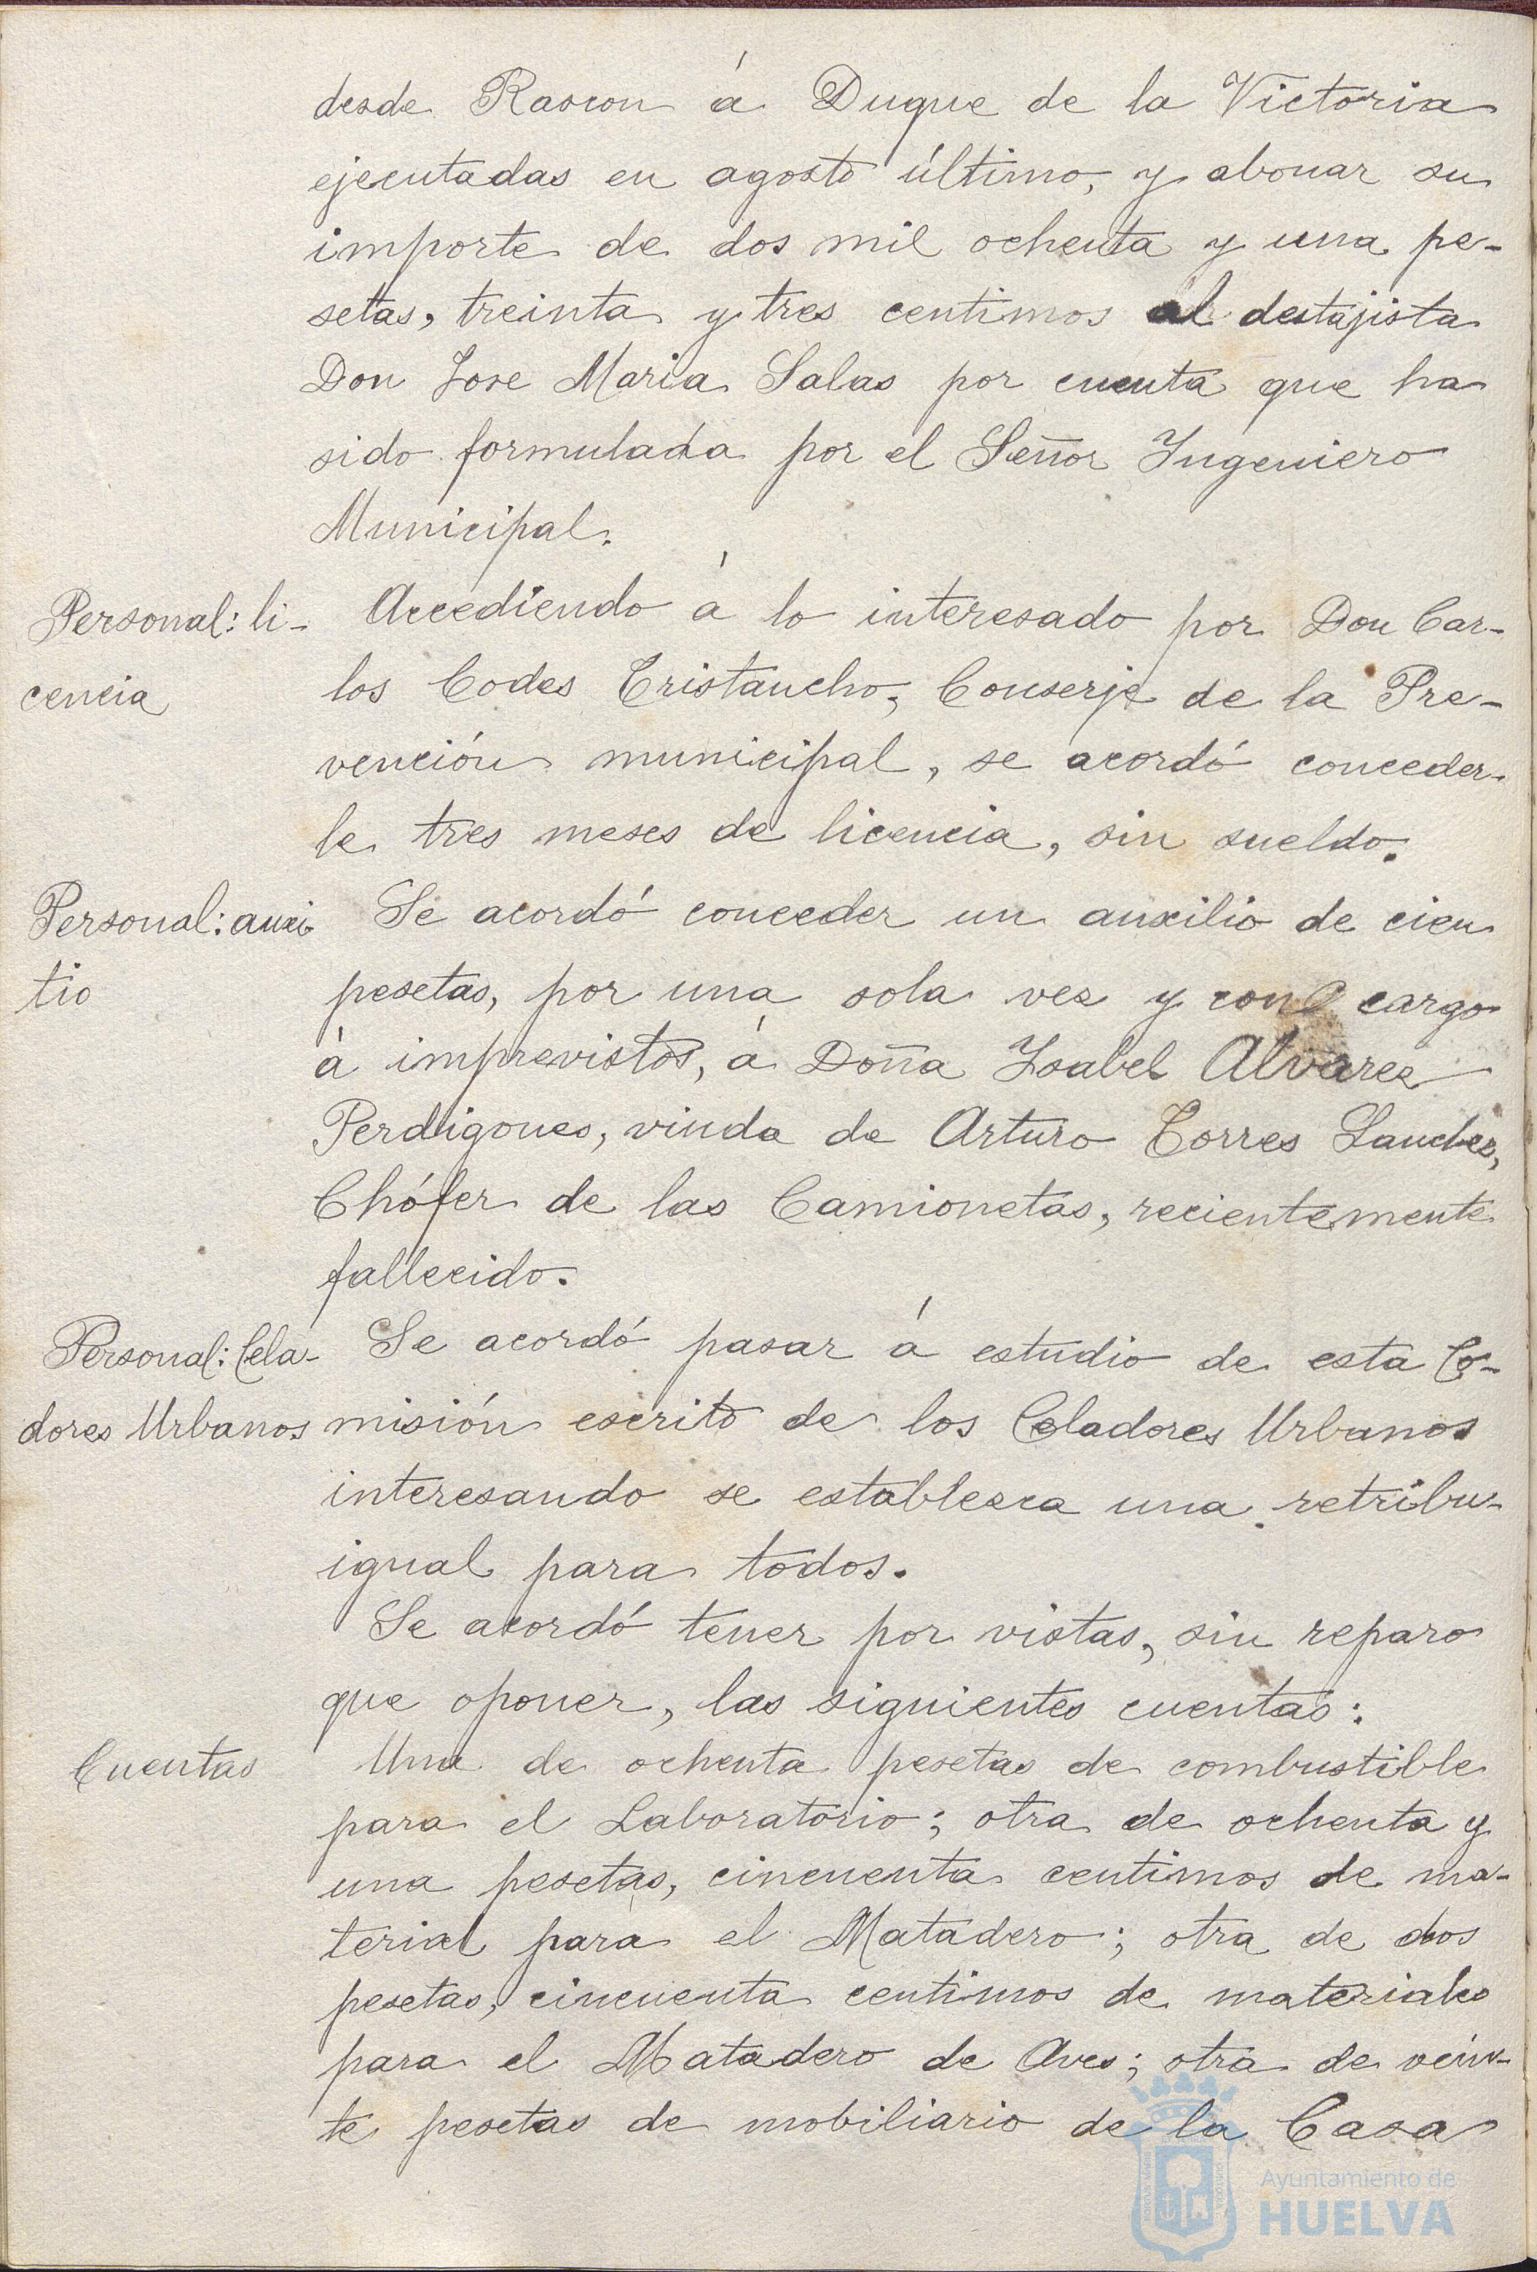 desde Rascon á Duque de la Victoria
ejecutadas en agosto último, y abonar su
importe de dos mil ochenta y una pe-
setas, treinta y tres centimos al destajista
Don Jose Maria Salas por cuenta que ha
sido formulada por el Señor Ingeniero
Municipal.
Personal: li-
cencia
Accediendo á lo interesado por Don Car-
los Codes Cristaucho, Conserje de la Pre-
vención municipal, se acordó conceder-
le tres meses de licencia, sin sueldo.
Personal: auxi
lio
Se acordó conceder un auxilio de cien
pesetas, por una sola vez y con cargo
á imprevistos, á Doña Isabel Alvarez
Perdigones, viuda de Arturo Torres Sanchez,
Chófer de las Camionetas, recientemente
fallecido.
Personal: Cela-
dores Urbanos
Se acordó pasar á estudio de esta Co-
misión escrito de los Celadores Urbanos
interesando se establezca una retribu-
igual para todos.
Se acordó tener por vistas, sin reparo
que oponer, las siguientes cuentas:
Cuentas
Una de ochenta pesetas de combustible
para el Laboratorio; otra de ochenta y
una pesetas, cincuenta centimos de ma-
terial para el Matadero; otra de dos
pesetas, cincuenta centimos de materiales
para el Matadero de Aves; otra de vein-
te pesetas de mobiliario de la Casa
Ayuntamiento de
HUELVA